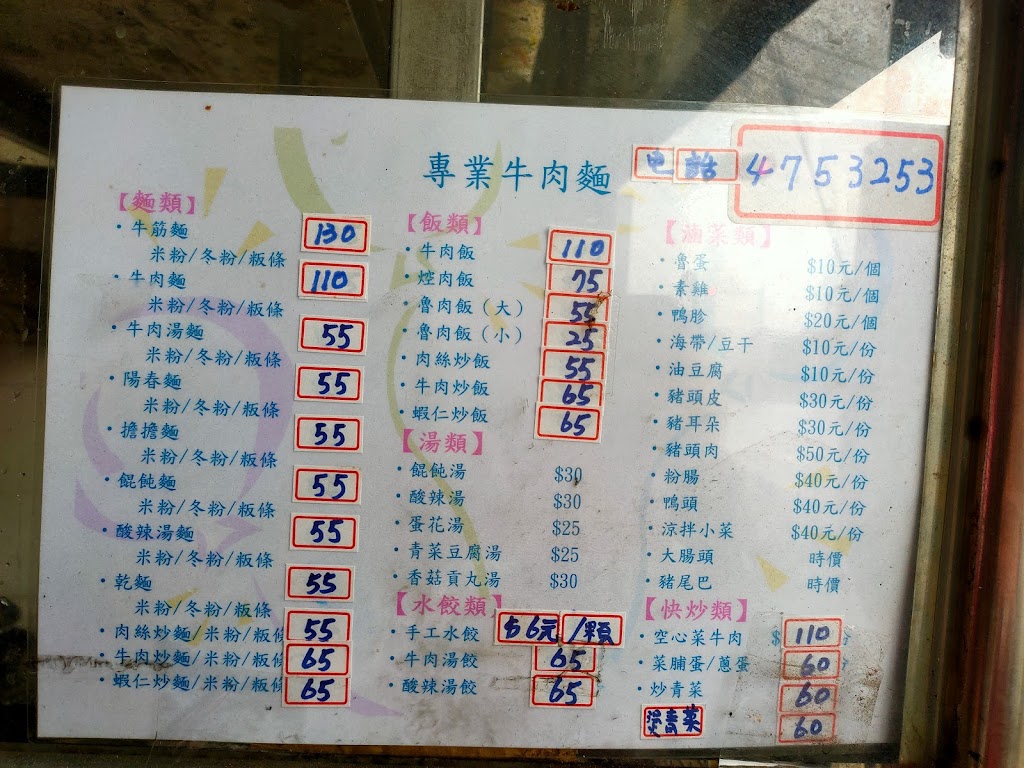 專業牛肉麵
電話 4753253
【麵類】
·牛筋麵 130
米粉/冬粉/粄條
·牛肉麵 110
米粉/冬粉/粄條
·牛肉湯麵 55
米粉/冬粉/粄條
·陽春麵 55
米粉/冬粉/粄條
·擔擔麵 55
米粉/冬粉/粄條
·餛飩麵 55
米粉/冬粉/粄條
·酸辣湯麵 55
米粉/冬粉/粄條
·乾麵 55
米粉/冬粉/粄條
·肉絲炒麵/米粉/粄條 55
·牛肉炒麵/米粉/粄條 65
·蝦仁炒麵/米粉/粄條 65
【飯類】
·牛肉飯 110
·焢肉飯 75
·魯肉飯（大） 55
·魯肉飯（小） 25
·肉絲炒飯 55
·牛肉炒飯 65
·蝦仁炒飯 65
【湯類】
·餛飩湯 $30
·酸辣湯 $30
·蛋花湯 $25
·青菜豆腐湯 $25
·香菇貢丸湯 $30
【水餃類】
·手工水餃 $6元/顆
·牛肉湯餃 65
·酸辣湯餃 65
【滷菜類】
·魯蛋 $10元/個
·素雞 $10元/個
·鴨胗 $20元/個
·海帶/豆干 $10元/份
·油豆腐 $10元/份
·豬頭皮 $30元/份
·豬耳朵 $30元/份
·豬頭肉 $50元/份
·粉腸 $40元/份
·鴨頭 $40元/份
·涼拌小菜 $40元/份
·大腸頭 時價
·豬尾巴 時價
【快炒類】
·空心菜牛肉 $110
·菜脯蛋/蔥蛋 60
·炒青菜 60
燙青菜 60